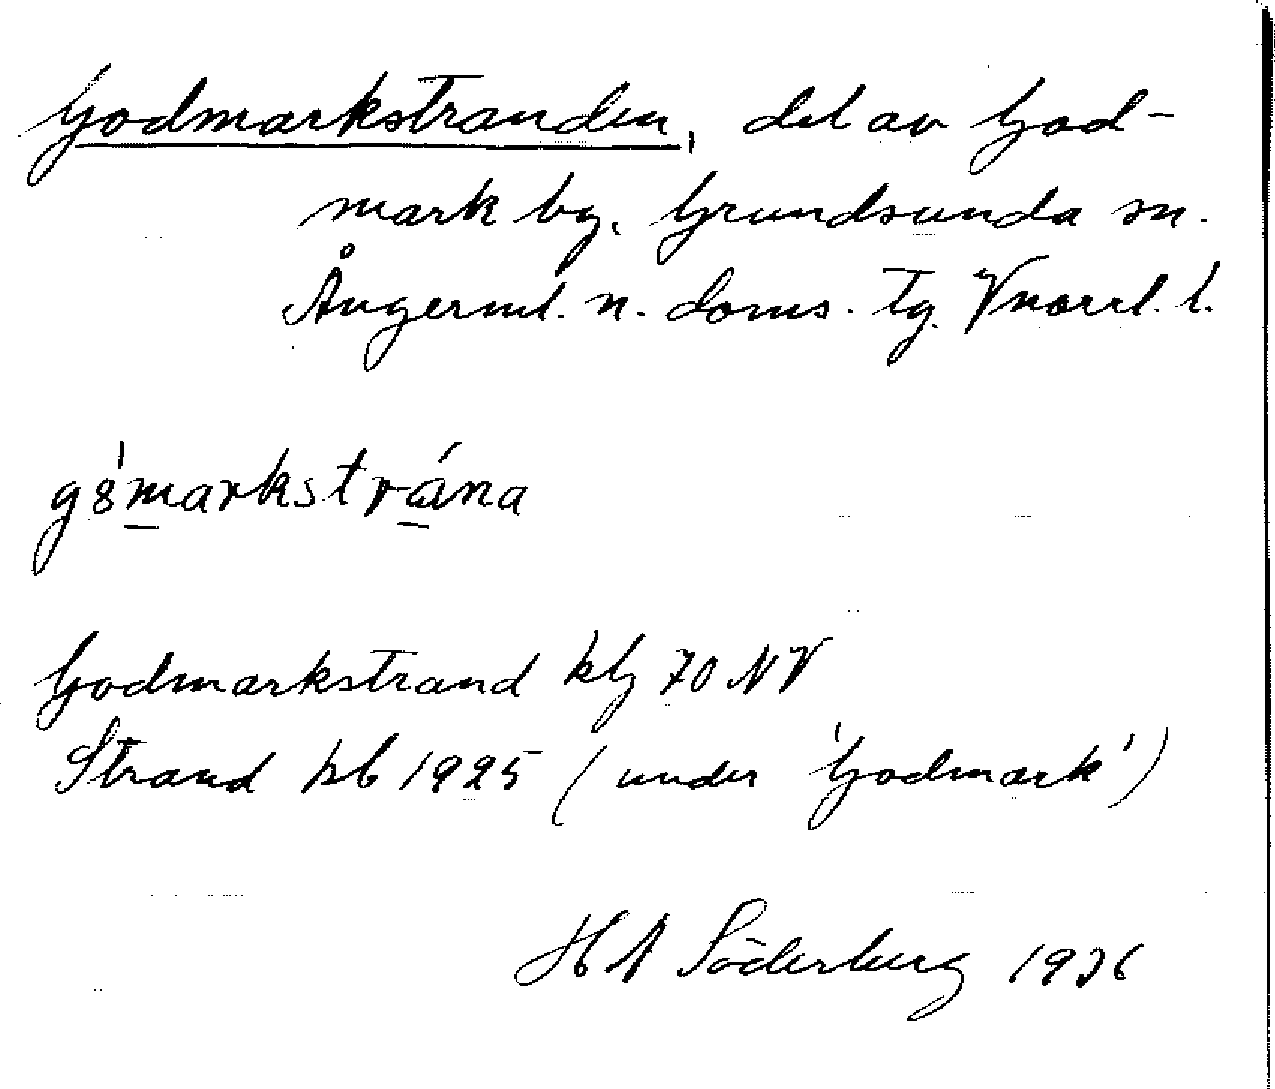 Godmarkstranden, del av God-
mark by. Grundsunda sn.
Ångerml. n. doms. tg. Vnorrl. l.
g8markstrána
Godmarkstrand kbg 70 NV
Strand hb 1925 (under 'Godmark')
H A Söderberg 1936